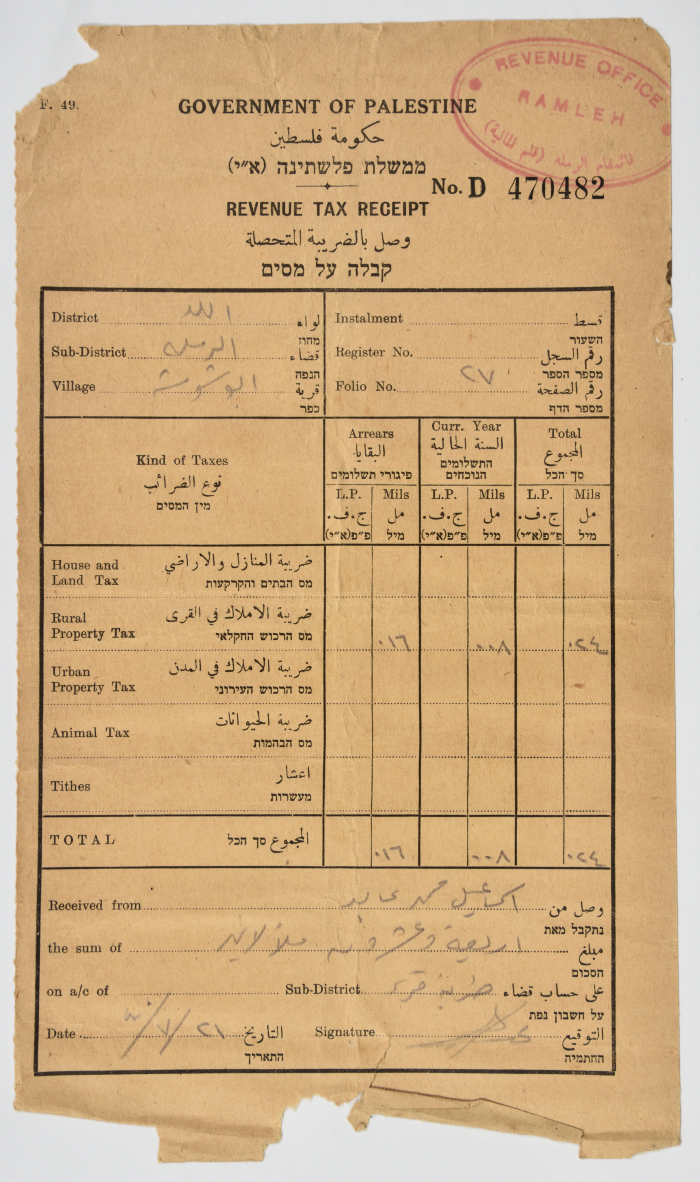 F. 49.
REVENUE OFFICE
RAMLEH
قائمقام الرملة (قلم المالية)
GOVERNMENT OF PALESTINE
حكومة فلسطين
ממשלת פלשתינה (א״י)
No. D 470482
REVENUE TAX RECEIPT
وصل بالضريبة المتحصلة
קבלה על מסים
District اللد لواء
מחוז
Sub-District الرملة قضاء
הנפה
Village ابو شوشة قرية
כפר
Instalment قسط
השעור
Register No. رقم السجل
מספר הספר
Folio No. ٢٧ رقم الصفحة
מספר הדף
Kind of Taxes
نوع الضرائب
מין המסים
Arrears
البقايا
פיגורי תשלומים
Curr. Year
السنة الحالية
התשלומים
הנוכחים
Total
المجموع
סך הכל
L.P. Mils L.P. Mils L.P. Mils
ج.ف. مل ج.ف. مل ج.ف. مل
פ״פ(א״י) מיל פ״פ(א״י) מיל פ״פ(א״י) מיל
House and ضريبة المنازل والاراضي
Land Tax מס הבתים והקרקעות
Rural ضريبة الاملاك في القرى
Property Tax מס הרכוש החקלאי ٠١٦ ٠٠٨ ٠٢٤
Urban ضريبة الاملاك في المدن
Property Tax מס הרכוש העירוני
Animal Tax ضريبة الحيوانات
מס הבהמות
Tithes اعشار
מעשרות
TOTAL המجموع סך הכל ٠١٦ ٠٠٨ ٠٢٤
Received from اسماعيل محمد عابد وصل من
נתקבל מאת
the sum of اربعة وعشرون ملا لاغير مبلغ
הסכום
on a/c of Sub-District على حساب قضاء
על חשבון נפת
Date ٢١/٧/ التاريخ Signature التوقيع
התאריך החתמיה